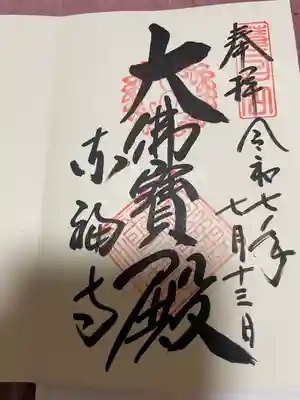 奉拝
令和七年
七月十三日
大佛寳殿
东福寺